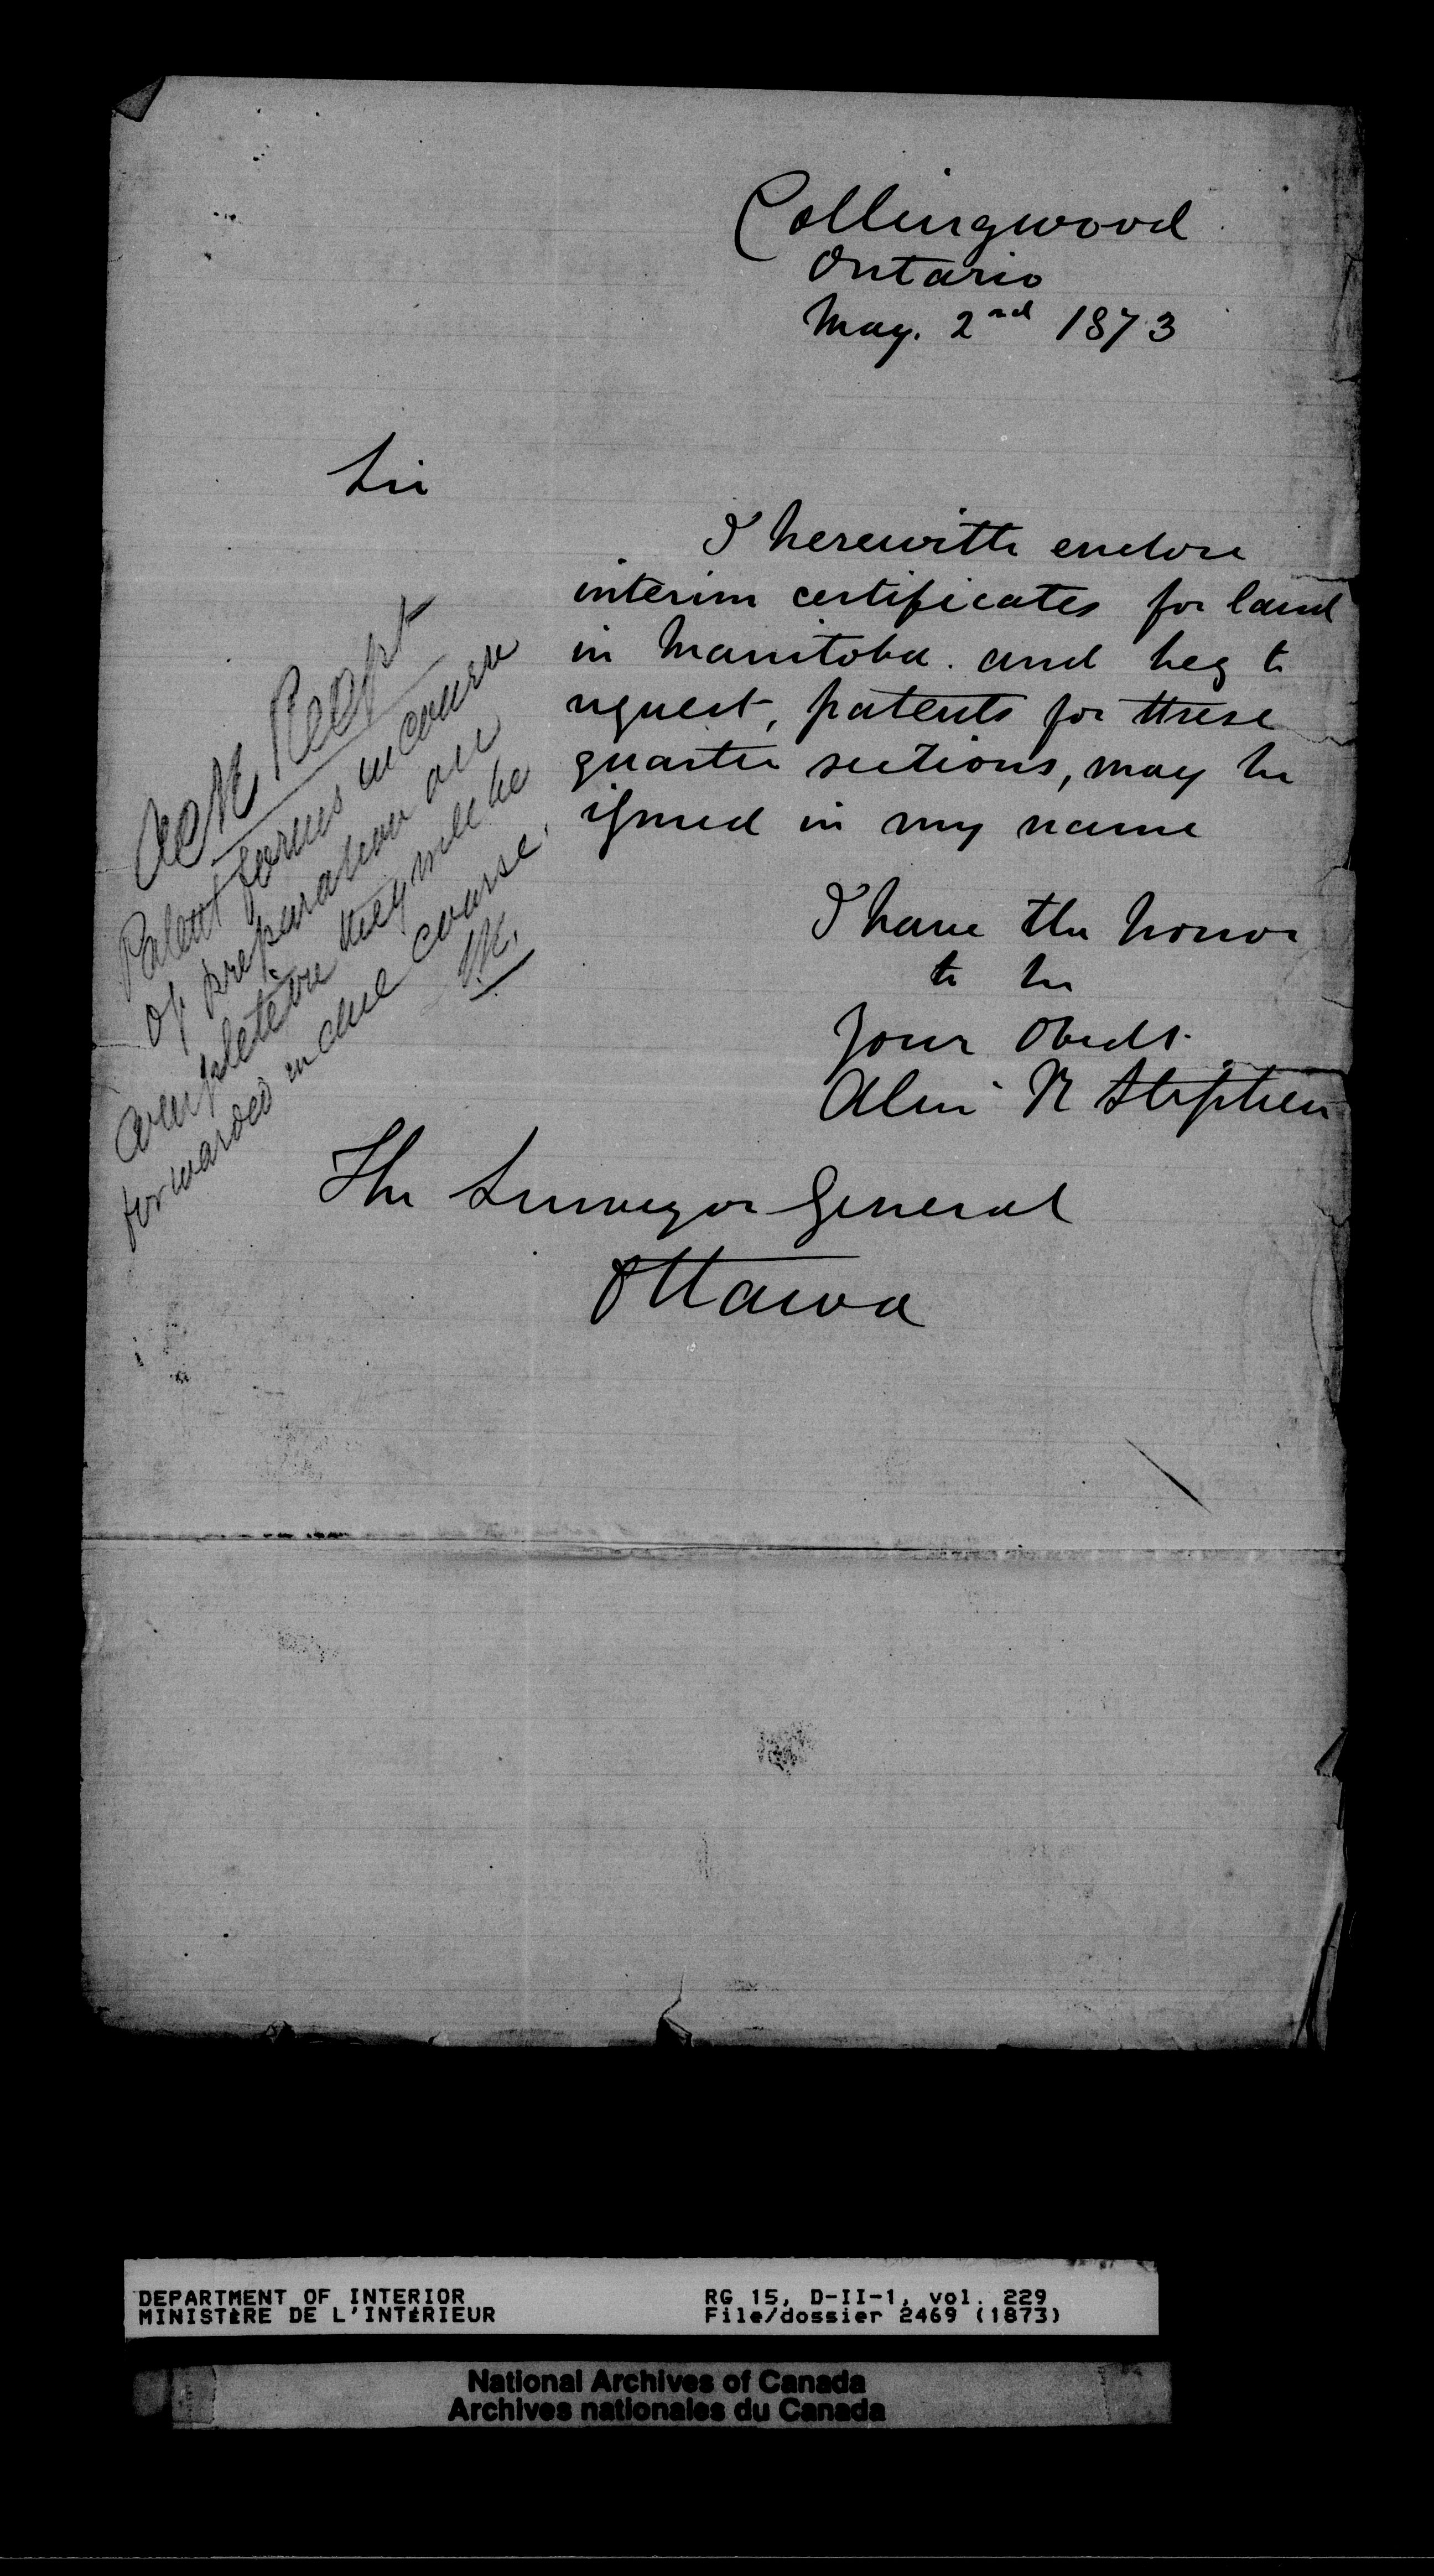 Collingwood
Ontario
May. 2nd 1873
Sir
I herewith enclose
interim certificates for land
in Manitoba. and beg to
request, patents for these
quarter sections, may be
issued in my name
I have the honor
to be
Your Obedt.
R Stephen
The Surveyor General
Ottawa
Ack Recpt
Patent forms in course
of preparation on
completion they will be
forwarded in due course.
DEPARTMENT OF INTERIOR
MINISTÈRE DE L'INTÉRIEUR
RG 15, D-II-1, vol. 229
File/dossier 2469 (1873)
National Archives of Canada
Archives nationales du Canada